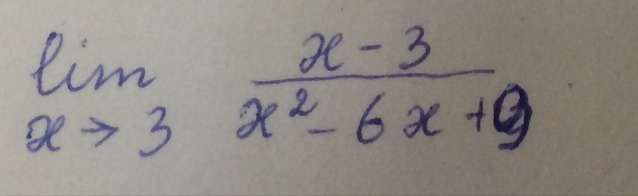 lim x→3 (x - 3)/(x² - 6x + 9)